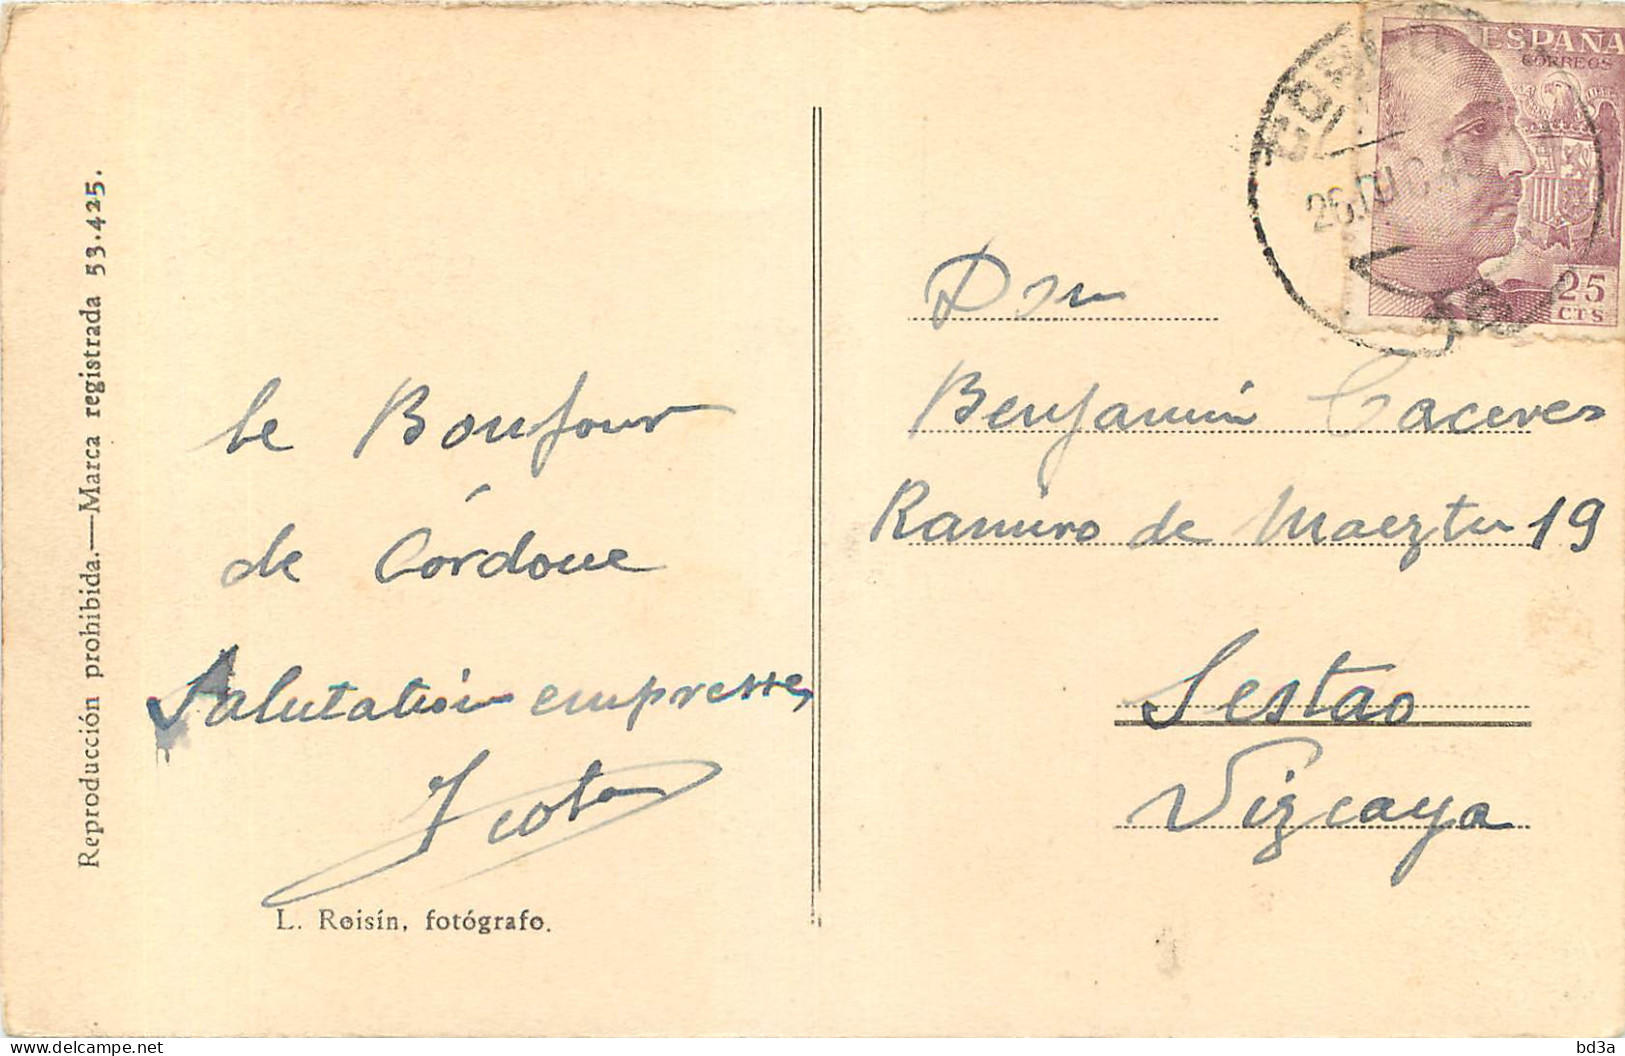 Reproducción prohibida.—Marca registrada 53.425.
le Bonjour
de Córdoue
Salutation empresse,
L. Roisín, fotógrafo.
ESPAÑA
CORREOS
25
CTS
Don
Benjamin Caceres
Ramiro de Maeztu 19
Sestao
Vizcaya
bd3a